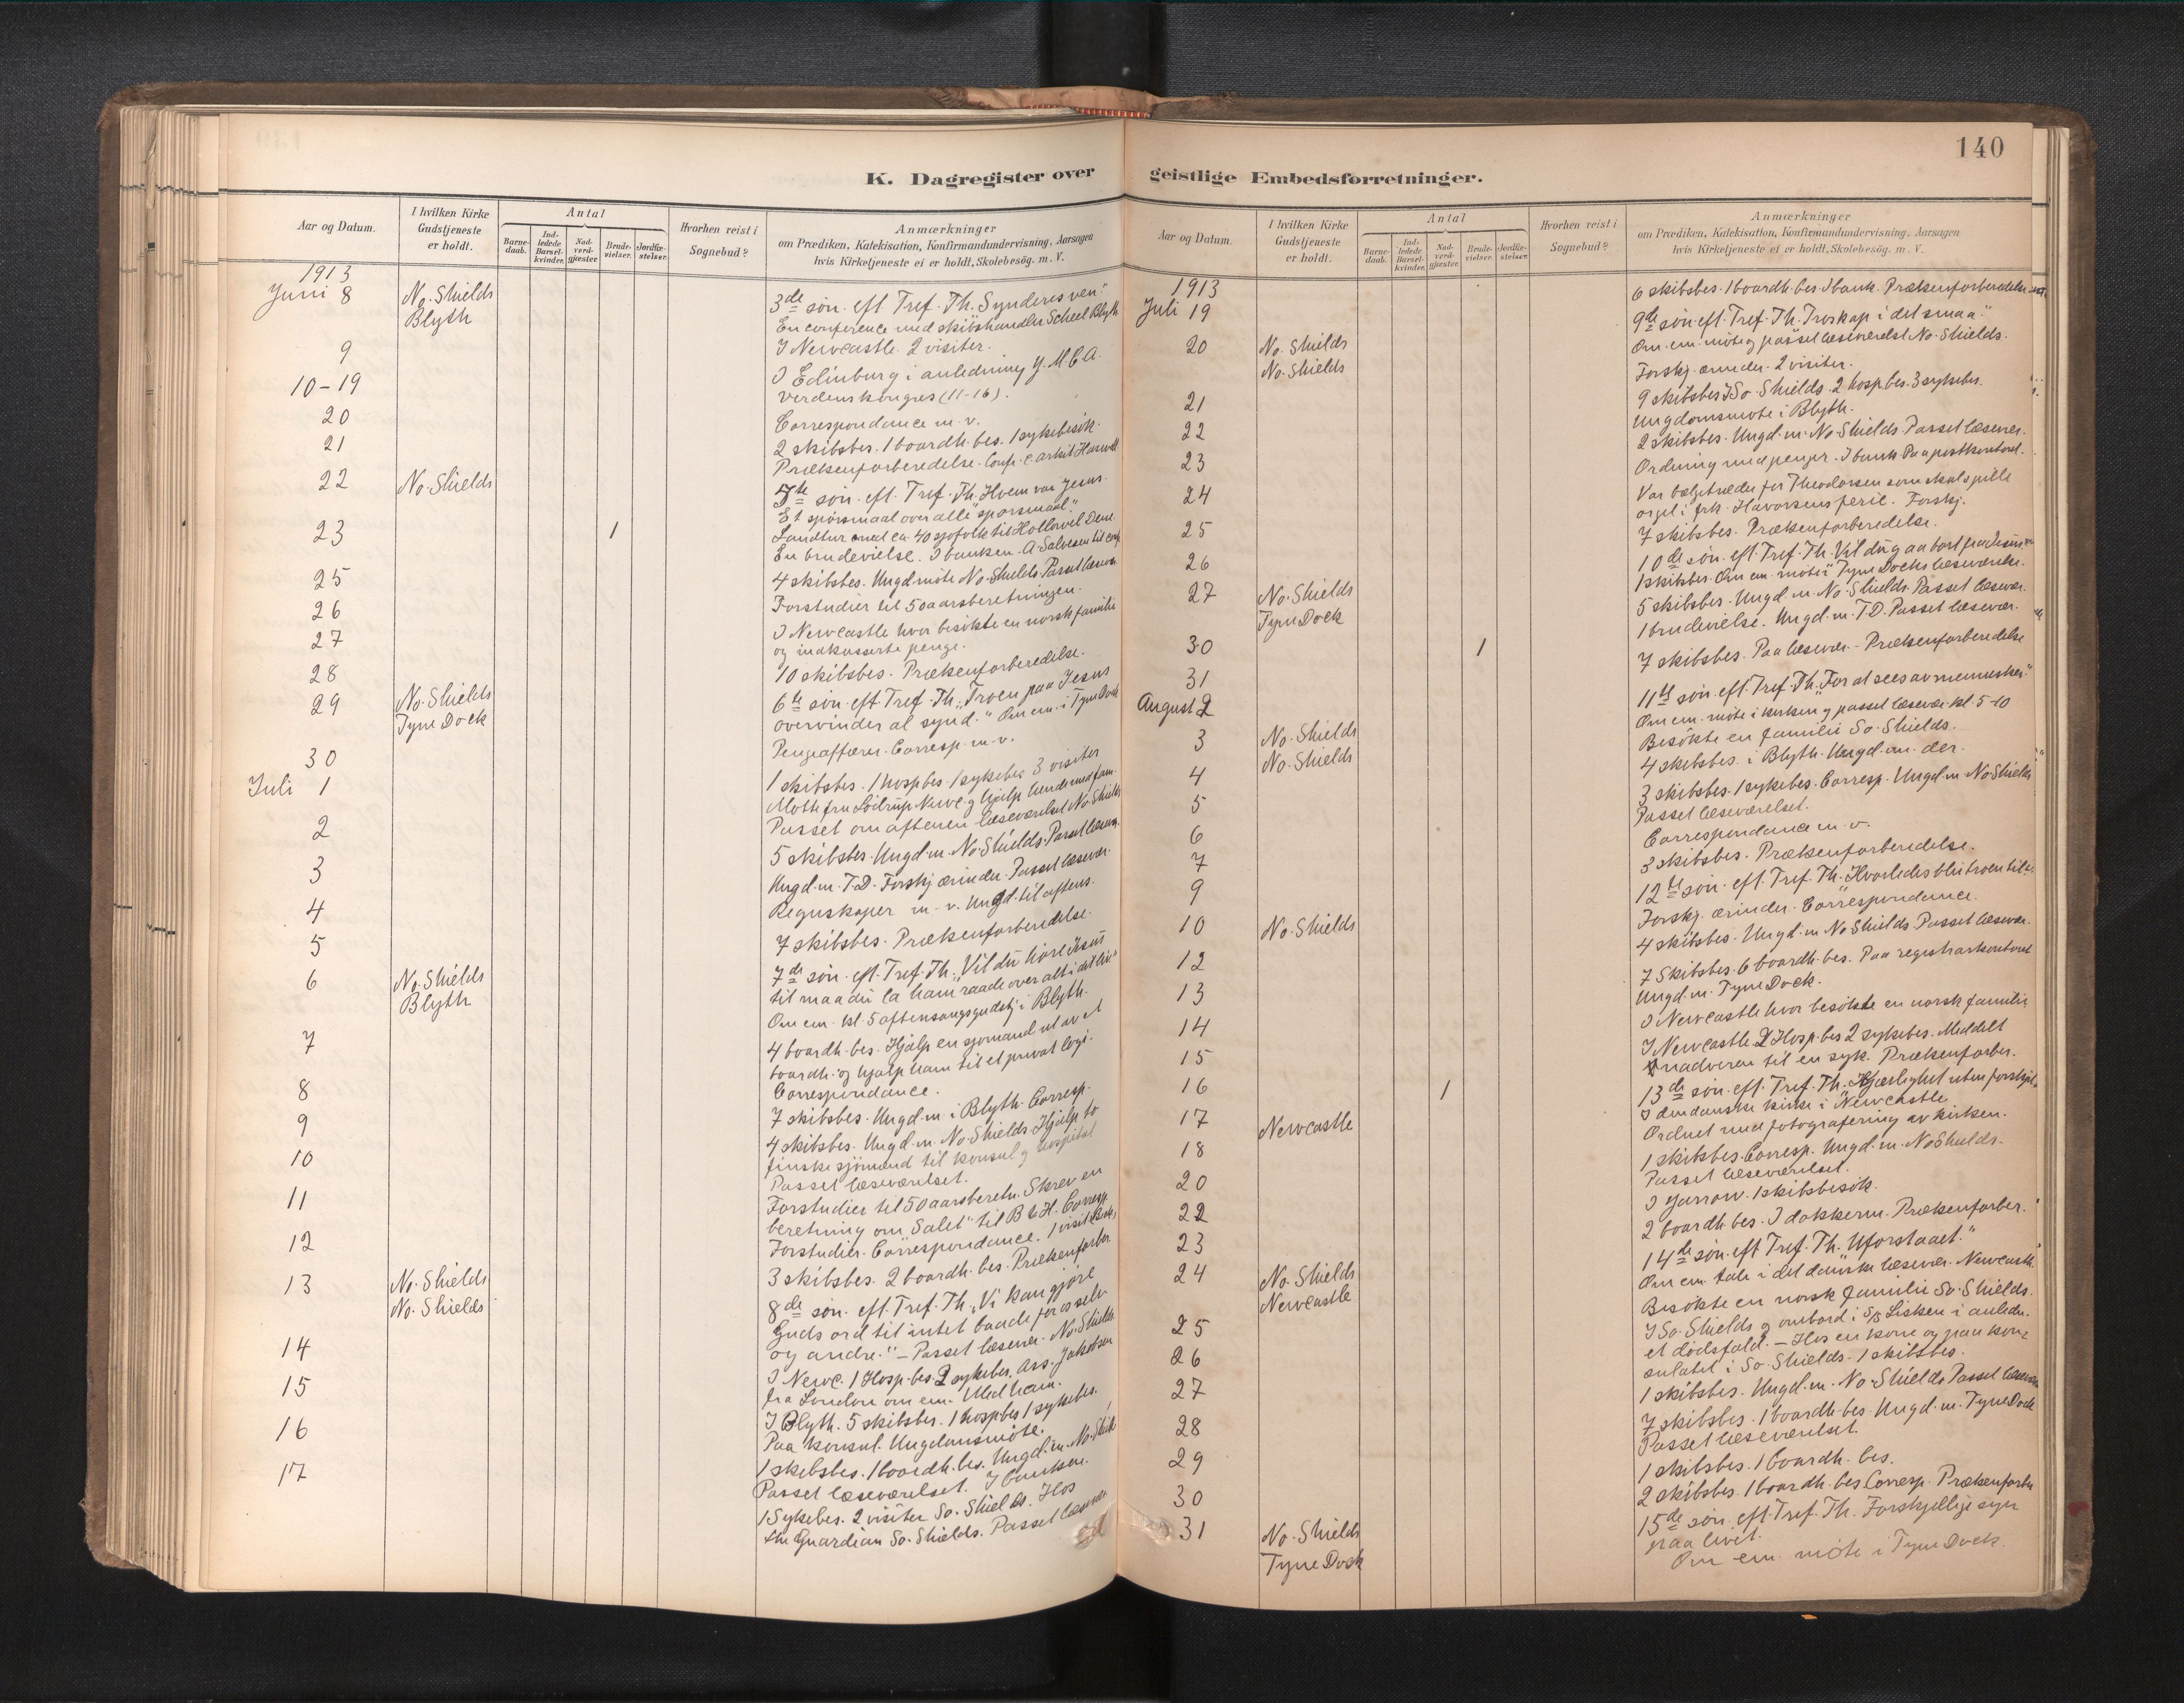 140
K. Dagregister over
Aar og Datum.
I hvilken Kirke
Gudstjeneste
er holdt.
Antal
Barne-
daab.
Ind-
ledede
Barsel-
kvinder.
Nad-
verd-
gjæster
Brude-
vielser.
Jordfæ-
stelser.
Hvorhen reist i
Sognebud?
Anmærkninger
om Prædiken, Katekisation, Konfirmandundervisning, Aarsagen
hvis Kirketjeneste ei er holdt, Skolebesög. m. V.
1913
Juni 8 No. Shields 3de søn. eft. Tref. Th. Synderes ven."
Blyth En conference med skibshandler Scheel Blyth
9 I Newcastle. 2 visiter.
10-19 I Edinburg i anledning Y.M.C.A.
verdenskongres (11-16).
20 Correspondance m. v.
21 2 skibsbes. 1 boardh. bes. 1 sykebesøk.
Prækenforberedelse. Conf. c. arkit.
22 No. Shields 5te søn. eft. Tref. Th. Hvem var Jesus.
Et spørsmaal over alle spørsmaal."
23 1 Landtur med ca. 40 sjøfolk til Hollowel Dene.
En brudevielse. I banken. A. Salvesen til
25 4 skibsbes. Ungd. møte No. Shields. Passet læsevær.
26 Forstudier til 50aarsberetningen.
27 I Newcastle hvor besøkte en norsk familie
og indkasserte penge.
28 10 skibsbes. Prækenforberedelse.
29 No. Shields 6te søn. eft. Tref. Th. „Troen paa Jesus
Tyne Dock overvinder al synd." Om em. i Tyne Dock
30 Pengeaffærer. Corresp. m. v.
Juli 1 1 skibsbes. 1 hosp. bes. 1 sykebes. 3 visiter
Passet om aftenen læseværelset No. Shields
2 5 skibsbes. Ungd. m. No. Shields. Passet læsevær.
3 Ungd. m. T.D. Forskj. ærinder. Passet læsevær.
4 Regnskaper m. v. Ungd. til aftens.
5 7 skibsbes. Prækenforberedelse.
6 No. Shields 7de søn. eft. Tref. Th. „Vil du høre Jesus
Blyth til maa du la ham raade over alt i dit liv"
Om em. kl. 5 aftensangsgudstj. i Blyth.
7 4 boardh. bes. Hjalp en sjømand ut av et
boardh. og hjalp ham til et privat logi.
8 Correspondance.
9 7 skibsbes. Ungd. m. i Blyth. Corresp.
10 4 skibsbes. Ungd. m. No. Shields. Hjalp to
finske sjømænd til konsul og hospital
Passet læseværelset.
11 Forstudier til 50aarsberetn. Skrev en
beretning om „Salet" til B & H. Corresp.
12 Forstudier. Correspondance. 1 visit
3 skibsbes. 2 boardh. bes. Prækenforber.
13 No. Shields 8de søn. eft. Tref. Th. „Vi kan gjøre
No. Shields Guds ord til intet baade for os selv
og andre." – Passet læsevær. No. Shields
14 I Newc. 1 Hosp. bes. 2 sykebes. Ass. Jakobsen
15 fra London om em. Med ham.
I Blyth. 5 skibsbes. 1 hosp. bes. 1 sykebes.
16 Paa konsul. Ungdomsmøte.
1 skibsbes. 1 boardh. bes. Ungd. m. No. Shields
17 Passet læseværelset. I banken.
1 Sykebes. 2 visiter So. Shields. Hos
the Guardian So. Shields. Passet læsevær.
geistlige Embedsforretninger.
Aar og Datum.
I hvilken Kirke
Gudstjeneste
er holdt.
Antal
Barne-
daab.
Ind-
ledede
Barsel-
kvinder.
Nad-
verd-
gjæster
Brude-
vielser.
Jordfæ-
stelser.
Hvorhen reist i
Sognebud?
Anmærkninger
om Prædiken, Katekisation, Konfirmandundervisning, Aarsagen
hvis Kirketjeneste ei er holdt, Skolebesög. m. V.
1913
Juli 19 6 skibsbes. 1 boardh. bes. I bank. Prækenforberedelse
20 No. Shields 9de søn. eft. Tref. Th. Troskap i det smaa."
No. Shields Om em. møte og passet læseværelset No. Shields.
21 Forskj. ærinder. 2 visiter.
22 9 skibsbes. So. Shields. 2 hosp. bes. 3 sykebes.
Ungdomsmøte i Blyth.
23 2 skibsbes. Ungd. m. No. Shields. Passet læsevær.
24 Ordning med penger. I bank. Paa postkontoret.
25 Var bælgetræder for Theodorsen som skal spille
orgel i frk. Havorsens ferie. Forskj.
26 7 skibsbes. Prækenforberedelse.
27 No. Shields 10de søn. eft. Tref. Th. Vil du gaa bort fra Jesus
Tyne Dock 1 skibsbes. Om em. møte i Tyne Docks læseværelse.
30 1 5 skibsbes. Ungd. m. No. Shields. Passet læsevær.
31 1 brudevielse. Ungd. m. T.D. Passet læsevær.
August 2 7 skibsbes. Paa læsevær. – Prækenforberedelse
3 No. Shields 11te søn. eft. Tref. Th. „For at sees av mennesker."
No. Shields Om em. møte i kirken og passet læsevær. kl. 5-10
4 Besøkte en familie So. Shields.
5 4 skibsbes. i Blyth. Ungd. m. der.
6 3 skibsbes. 1 sykebes. Corresp. Ungd. m. No. Shields
Passet læseværelset.
7 Correspondance m. v.
9 3 skibsbes. Prækenforberedelse.
10 No. Shields 12te søn. eft. Tref. Th. Hvorledes blir troen til.
12 Forskj. ærinder. Correspondance.
13 4 skibsbes. Ungd. m. No. Shields. Passet læsevær.
14 7 Skibsbes. 6 boardh. bes. Paa registrarkontoret
Ungd. m. Tyne Dock.
15 I Newcastle hvor besøkte en norsk familie
16 1 I Newcastle. 2 Hosp. bes. 2 sykebes. Meddelt
nadveren til en syk. Prækenforber.
17 Newcastle 13de søn. eft. Tref. Th. Kjærlighet uten forskjel.
I den danske kirke i Newcastle
18 Ordnet med fotografering av kirken.
20 1 skibsbes. Corresp. Ungd. m. No. Shields.
Passet læseværelset.
22 I Jarrow. 1 skibsbesøk.
23 2 boardh. bes. I dokkerne. Prækenforber.
24 No. Shields 14de søn. eft. Tref. Th. „Uforstaaet."
Newcastle Om em. tale i det danske læsevær. Newcastle.
25 Besøkte en norsk familie So. Shields.
26 I So. Shields og ombord i S/S Lisken i anledn.
et dødsfald. – Hos en kone og paa kon=
sulatet i So. Shields. 1 skibsbes.
27 1 skibsbes. Ungd. m. No. Shields. Passet læsevær.
28 7 skibsbes. 1 boardh. bes. Ungd. m. Tyne Dock
Passet læseværelset.
29 1 skibsbes. 1 boardh. bes.
30 2 skibsbes. 1 boardh. bes. Corresp. Prækenforber.
31 No. Shields 15de søn. eft. Tref. Th. Forskjellige syn
paa livet.
Tyne Dock Om em. møte i Tyne Dock.